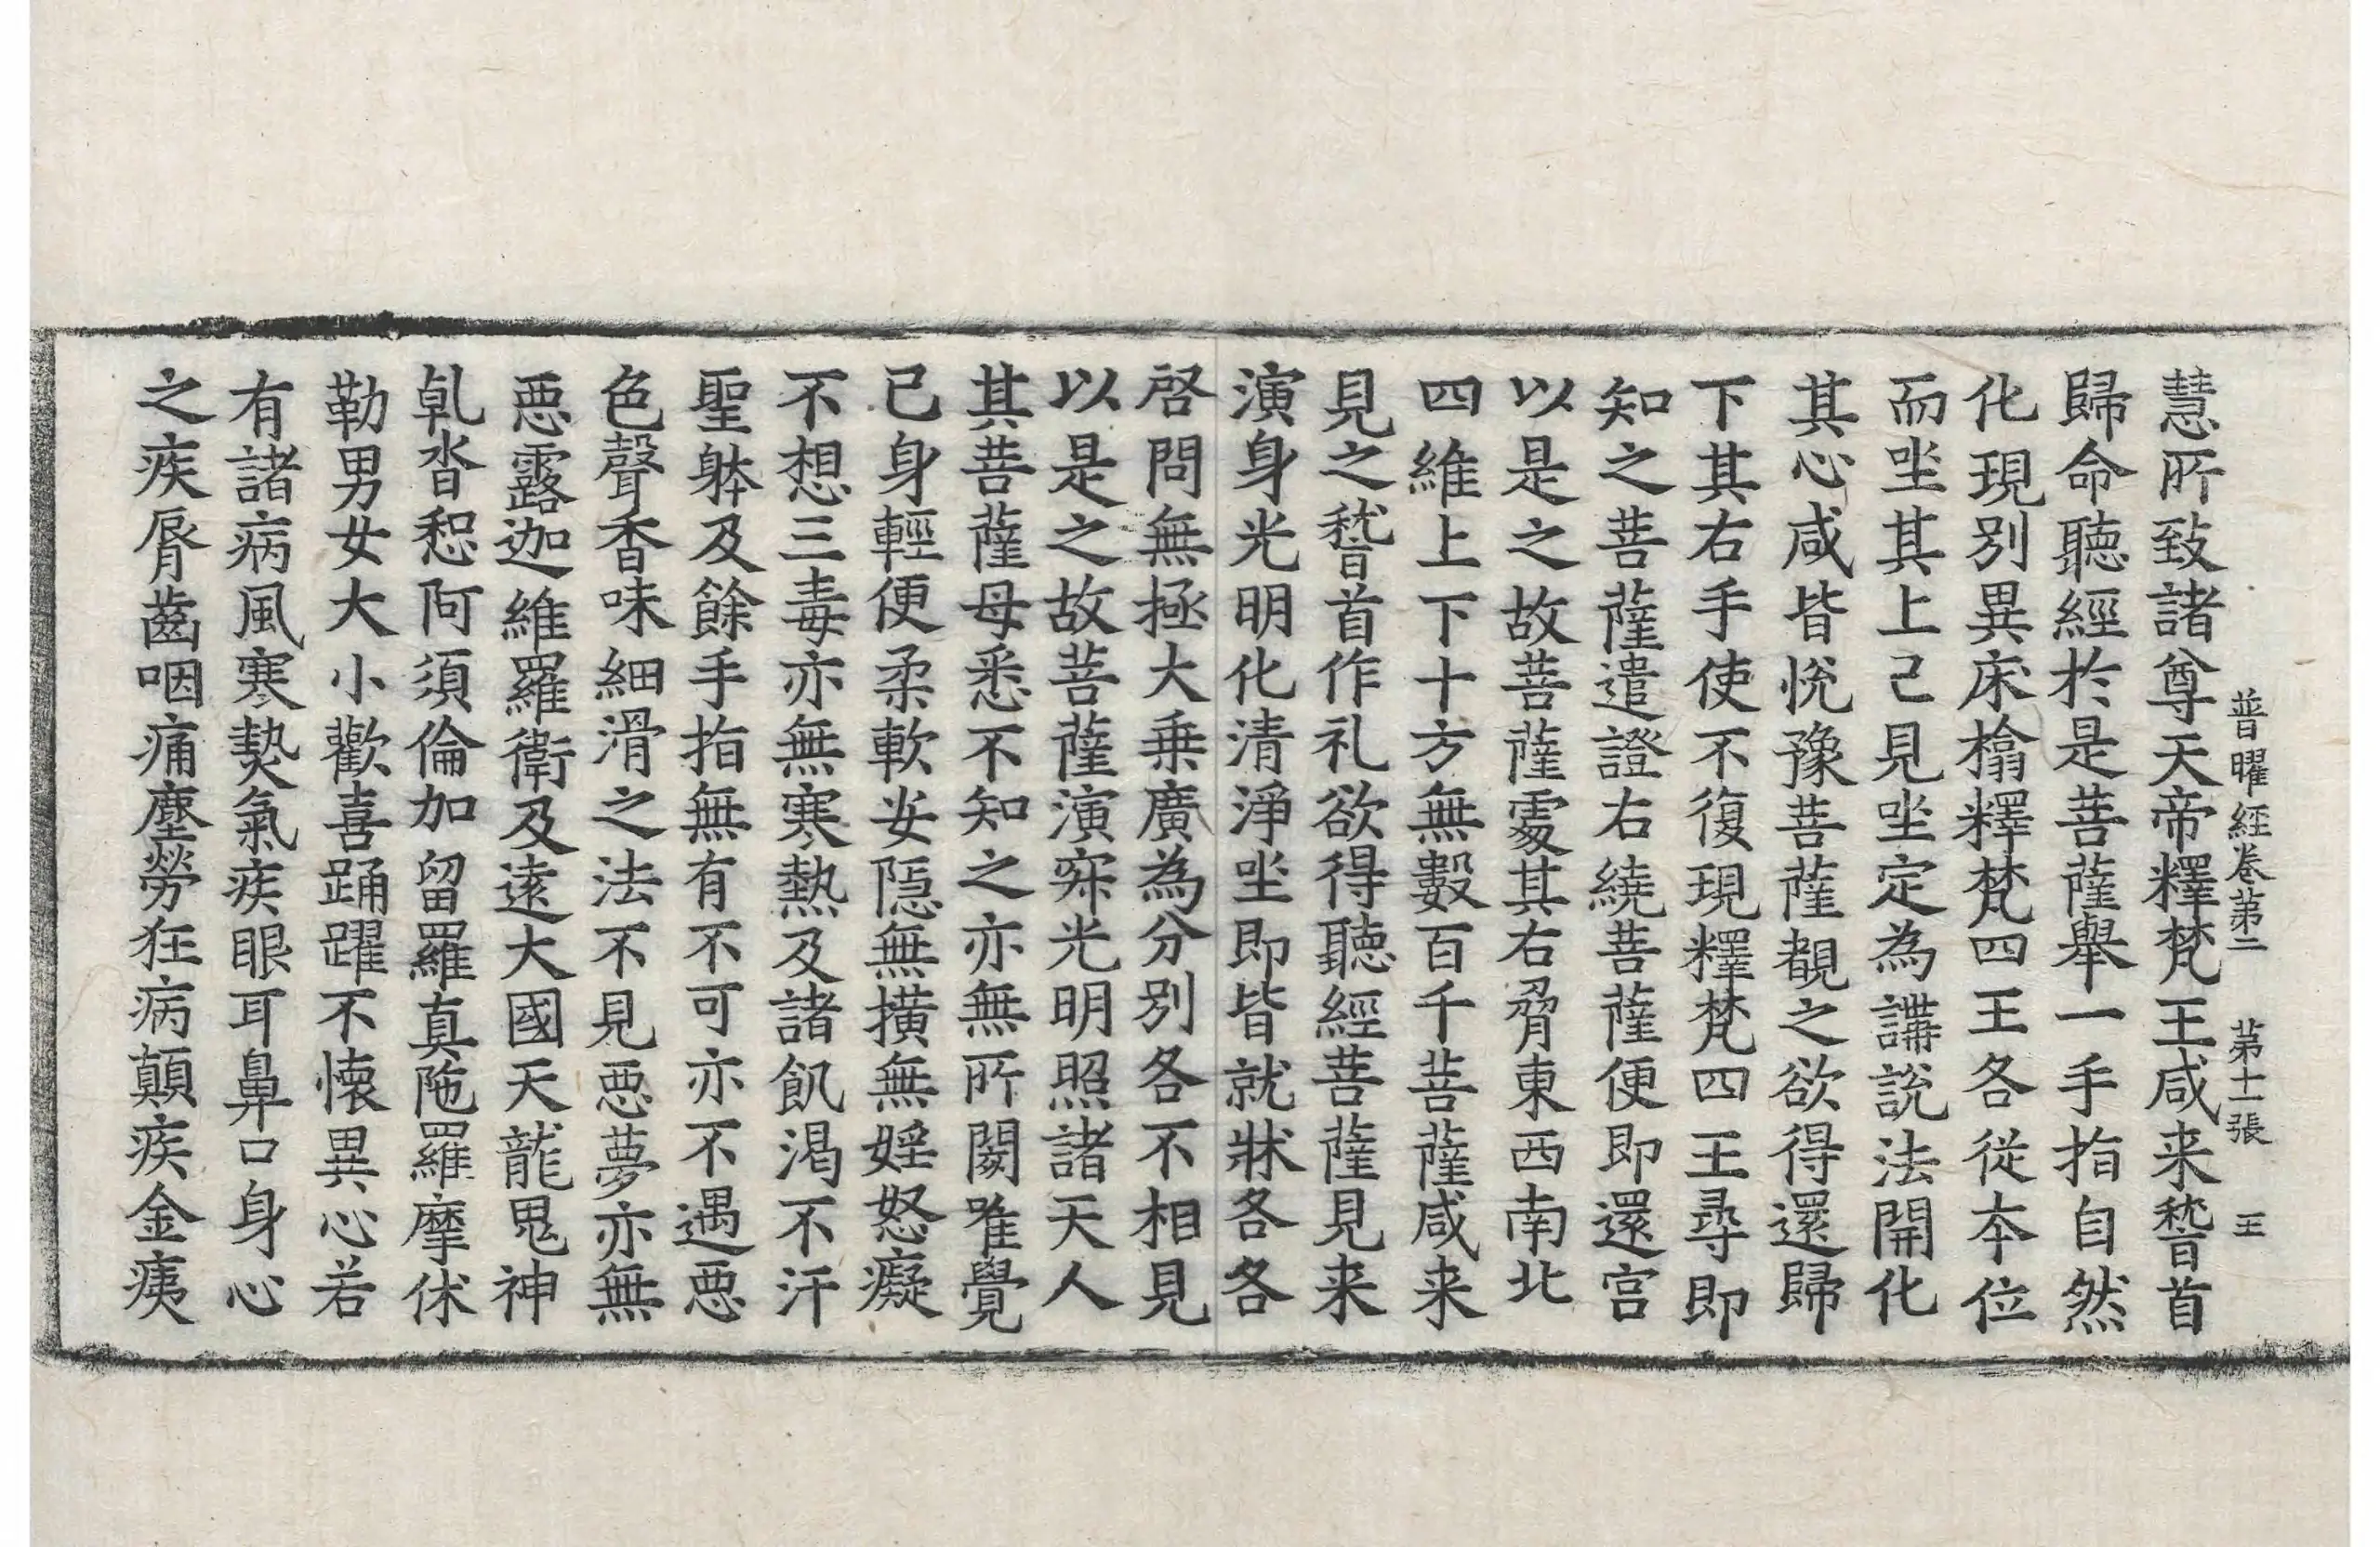 普曜經卷第二　第十二張　王
慧所致諸尊天帝釋梵王咸来稽首
歸命聽經於是菩薩舉一手指自然
化現別異床榻釋梵四王各從本位
而坐其上己見坐定為講說法開化
其心咸皆悅豫菩薩覩之欲得還歸
下其右手使不復現釋梵四王尋即
知之菩薩遣證右繞菩薩便即還宮
以是之故菩薩處其右脅東西南北
四維上下十方無數百千菩薩咸来
見之稽首作礼欲得聽經菩薩見来
演身光明化清淨坐即皆就牀各各
啓問無極大乗廣為分別各不相見
以是之故菩薩演𥧌光明照諸天人
其菩薩母悉不知之亦無所闕唯覺
已身輕便柔軟安隱無撗無婬怒癡
不想三毒亦無寒熱及諸飢渴不汗
聖躰及餘手指無有不可亦不遇惡
色聲香味細滑之法不見惡夢亦無
惡露迦維羅衛及逺大國天龍鬼神
乹沓惒阿須倫加留羅真陁羅摩休
勒男女大小歡喜踊躍不懐異心若
有諸病風寒𤍠氣疾眼耳鼻口身心
之疾脣齒咽痛塵勞狂病顛疾金痍